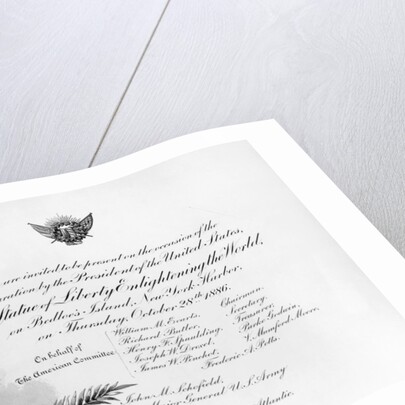 are invited to be present on the occasion of the
ration by the President of the United States,
Statue of Liberty Enlightening the World,
on Bedloe's Island, New York Harbor.
on Thursday, October 28th 1886.
On behalf of
The American Committee
William M. Evarts. Chairman.
Richard Butler. Secretary.
Henry F. Spaulding. Treasurer.
Joseph W. Drexel. Parke Godwin.
James W. Pinchot. V. Mumford Moore.
Frederic A. Potts.
John M. Schofield,
Major General U.S. Army
Atlantic.